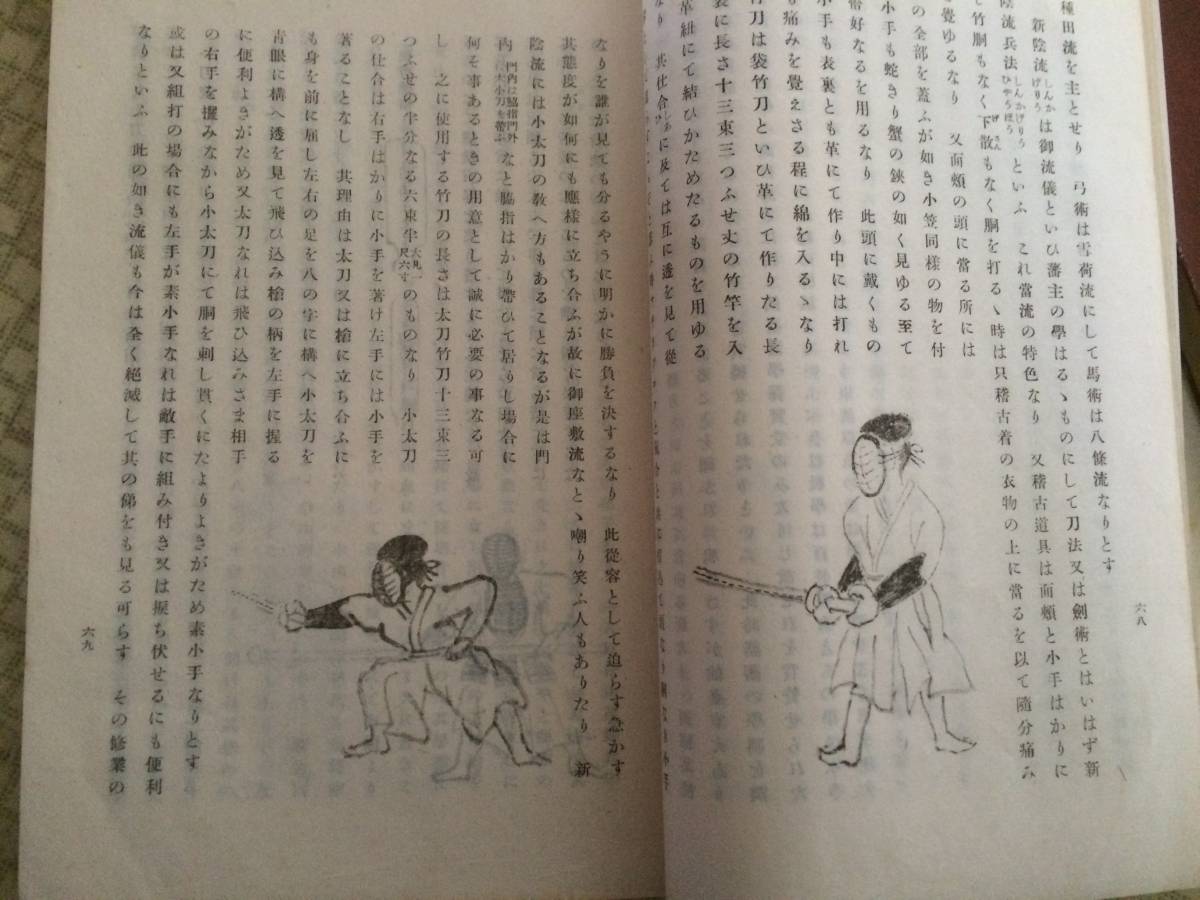 種田流を主とせり　弓術は雪荷流にして馬術は八條流なりとす
新陰流は御流儀といひ藩主の學はるゝものにして刀法又は劍術とはいはず新
陰流兵法といふ　これ當流の特色なり　又稽古道具は面頰と小手はかりに
て竹胴もなく下散もなく胴を打るゝ時は只稽古着の衣物の上に當るを以て隨分痛み
を覺ゆるなり　又面頰の頭に當る所には
の全部を蓋ふが如き小笠同樣の物を付
小手も蛇きり蟹の鋏の如く見ゆる至て
好なるを用るなり　此頭に戴くもの
小手も表裏とも革にて作り中には打れ
り痛みを覺えさる程に綿を入るゝなり
竹刀は袋竹刀といひ革にて作りたる長
袋に長さ十三束三つふせ丈の竹竿を入
革紐にて結ひかためたるものを用ゆる
なり　其仕合に及ては互に透を見て從
六八
なりを誰が見ても分るやうに明かに勝負を決するなり　此從容として迫らす急かす
其態度が如何にも應樣に立ち合ふが故に御座敷流なとゝ嘲り笑ふ人もありたり　新
陰流には小太刀の敎へ方もあることとなるが是は門
內門內は脇指門外は大小刀を帶ふなと脇指はかり帶ひて居りし場合に
何そ事あるときの用意として誠に必要の事なる可
し　之に使用する竹刀の長さは太刀竹刀十三束三
つふせの半分なる六束半大見一尺六寸のものなり　小太刀
の仕合は右手はかりに小手を著け左手には小手を
著ることなし　其理由は太刀又は槍に立ち合ふに
も身を前に屈し左右の足を八の字に構へ小太刀を
靑眼に構へ透を見て飛ひ込み槍の柄を左手に握る
に便利よきがため又太刀なれは飛ひ込みさま相手
の右手を攫みなから小太刀にて胴を刺し貫くにたよりよきがため素小手なりとす
或は又組打の場合にも左手が素小手なれは敵手に組み付き又は捩ち伏せるにも便利
なりといふ　此の如き流儀も今は全く絕滅して其の俤をも見る可らす　その修業の
六九